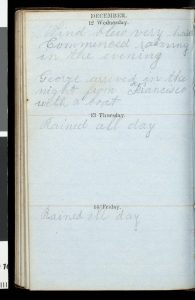 DECEMBER.
12 Wednesday.
Wind blew very hard
Commenced raining
in the evening
George arrived in the
night from Francisco
with a boat
13 Thursday.
Rained all day
14 Friday.
Rained all day